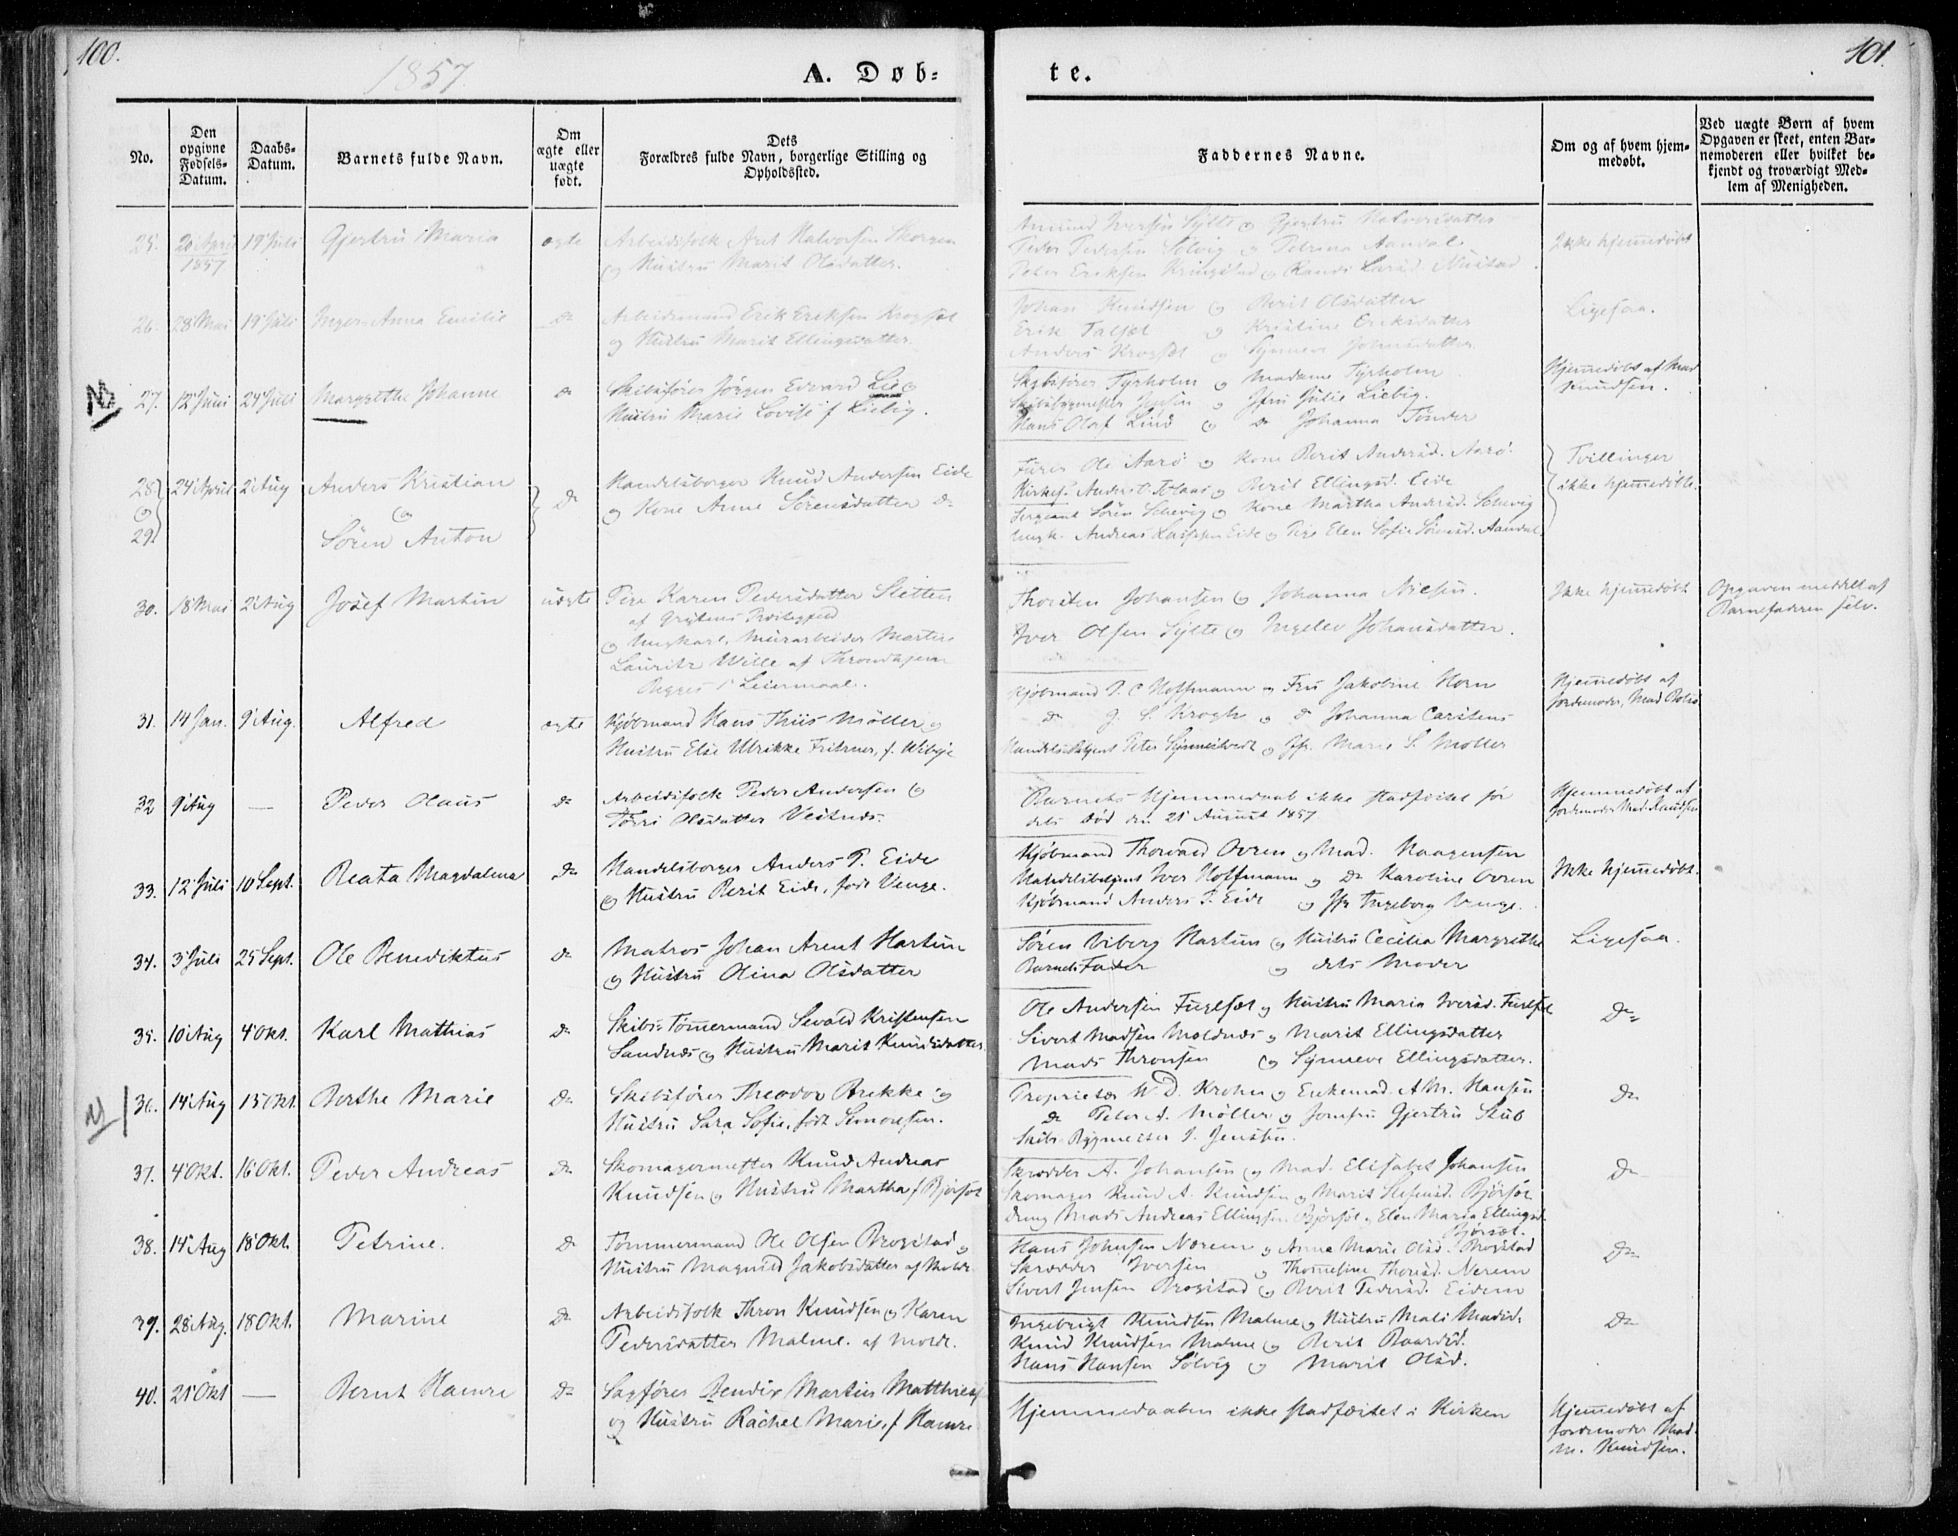 100.
1857.
A. Døb-
te.
101.
No.
Den opgivne Fødsels-Datum.
Daabs-Datum.
Barnets fulde Navn.
Om ægte eller uægte født.
Dets Forældres fulde Navn, borgerlige Stilling og Opholdssted.
Faddernes Navne.
Om og af hvem hjem-medøbt.
Ved uægte Børn af hvem Opgaven er skeet, enten Bar-nemoderen eller hvilket be-kjendt og troværdigt Med-lem af Menigheden.
25. 20 April 1857 19 Juli Gjertru Maria ægte
Halvorsen Skorgen
og Hustru Marit Olsdatter.
Amund Iversen Sylte og Gjertru Halvorsdatter
Peder Pedersen Sølvig og Petrina Aandal
Peter Eriksen Kringstad og
Ikke hjemmedøbt
26. 28 Mai 19 Juli Inger Anna Emilie Do
Arbeidsmand Erik Eriksen
og Hustru Marit Ellingsdatter.
Johan Knudsen og Berit Olsdatter
Erik og Kristine Eriksdatter
Anders og Synneve Johnsdatter
Ligesaa.
NB 27. 12 Juni 24 Juli Margrethe Johanne Do
Skibsfører Jørgen Edvard Lie og
Hustru Marie Lovise f. Liebig.
Skibsfører Tyrholm og Madame Tyrholm
Skibsbygmester Jensen og Jfru Julie Liebig.
Hans Olaf Lund og Do Johanna Tønder
Hjemmedøbt af Mad Knudsen.
28 og 29. 24 April 2 Aug Anders Kristian
og
Søren Anton
Do
Handelsborger Knud Andersen Eide
og Kone Anne Sørensdatter Do
Ole Aarø og Kone Berit Andersd. Aarø.
Kirkes. Anders og Berit Ellingsd. Eide
Sergeant Søren Solvig og Kone Martha Andersd. Solvig
Ungk. Andreas Eide og Pige Elen Sofie Aandal.
Tvillinger
ikke hjemmedøbte.
30. 18 Mai 2 Aug Josef Martin uægte
Pige Karen Pedersdatter Sletten
af Grytens Præstegjeld
og Ungkarl, Murarbeider Martin
Lauritz Wille af Throndhjem
Begges 1ste Leiermaal.
Thorsten Johansen og Johanna Nielsen.
Iver Olsen Sylte og Ingelev Johansdatter.
Ikke hjemmedøbt
Opgaven meddelt af
Barnefaderen selv.
31. 14 Jan. 9 Aug. Alfred ægte
Kjøbmand Hans Thiis Møller og
Hustru Else Ulrikke Fritzner, f. Wibye
Kjøbmand J. C Hoffmann og Fru Jakobine Horn
Do G. S. Krogh og Do Johanna Carstens
Handelsbetjent Peter og Jfr. Marie S. Møller
Hjemmedøbt af
Jordemoder, Mad
32 9 Aug — Peder Olaus Do
Arbeidsfolk Peder Andersen og
Olsdatter Vestnes.
Barnets Hjemmedaab ikke stadfæstet før
dets Død den 21 August 1857
Hjemmedøbt af
Jordemoder Mad. Knudsen
33. 12 Juli 10 Sept. Beata Magdalena Do
Handelsborger Anders P. Eide
og Hustru Berit Eide, født Venge.
Kjøbmand Thorvald Owren og Mad. Haagensen
Handelsbetjent Iver Hoffmann og Do Karoline Owren
Kjøbmand Anders P. Eide og Jfr Ingeborg Venge.
Ikke hjemmedøbt.
34. 3 Juli 25 Sept. Ole Benediktus Do
Matros Johan Arent Hartun
og Hustru Olina Olsdatter
Søren Viberg Hartun og Hustru Cecilia Margrethe
Barnets Fader og dets Moder
Ligesaa.
35. 10 Aug 4 Okt. Karl Mathias Do
Skibs Tømmermand Sevald Kristensen
Sandnes og Hustru Marit Knudsdatter.
Ole Andersen Fuglset og Hustru Maria Iversd. Fuglset
Sivert Madsen Moldnes og Marit Ellingsdatter
Mads Thronsen og Synneve Ellingsdatter.
Do
36. 14 Aug 15 Okt. Berthe Marie Do
Skibsfører Theodor Brekke og
Hustru Sara Sofie, født Simonsen.
Proprietær W. D. Krohn og Enkemad. A. M. Hansen
Do Peter A. Møller og Jomfru Gjertru Stub
Skibs Bygmester J. Jensen.
Do
37. 4 Okt. 16 Okt. Peder Andreas Do
Skomagermester Knud Andreas
Knudsen og Hustru Martha f. Bjørset
Skrædder A. Johansen og Mad. Elisabet Johansen
Skomager Knud A. Knudsen og Marit Bjørset
Dreng Mads Andreas Ellingsen Bjørset og Elen Maria Ellingsd.
Bjørset.
Do
38. 14 Aug 18 Okt. Petrine. Do
Tømmermand Ole Olsen Brogstad og
Hustru Magnild Jakobsdatter af Molde
Hans Johnsen Norem og Anna Marie Olsd. Brogstad
Skrædder Iversen og Thomesine Nerem
Sivert Jensen Brogstad og Berit Pedersd. Eidem
Do
39. 28 Aug. 18 Okt. Marine Do
Arbeidsfolk Thron Knudsen og Karen
Pedersdatter Malme. af Molde.
Ingebrigt Knudsen Malme og Hustru Mali Madsd.
Knud Knudsen Malme og Berit Baardsd.
Hans Hansen Sølvig og Marit Olsd.
Do
40. 21 Okt — Bernt Hamre Do
Sagfører Bendix Martin Matthiesen
og Hustru Rachel Marie, f Hamre
Hjemmedaaben ikke stadfæstet i Kirken
Hjemmedøbt af
Jordemoder Mad.
M. Knudsen.